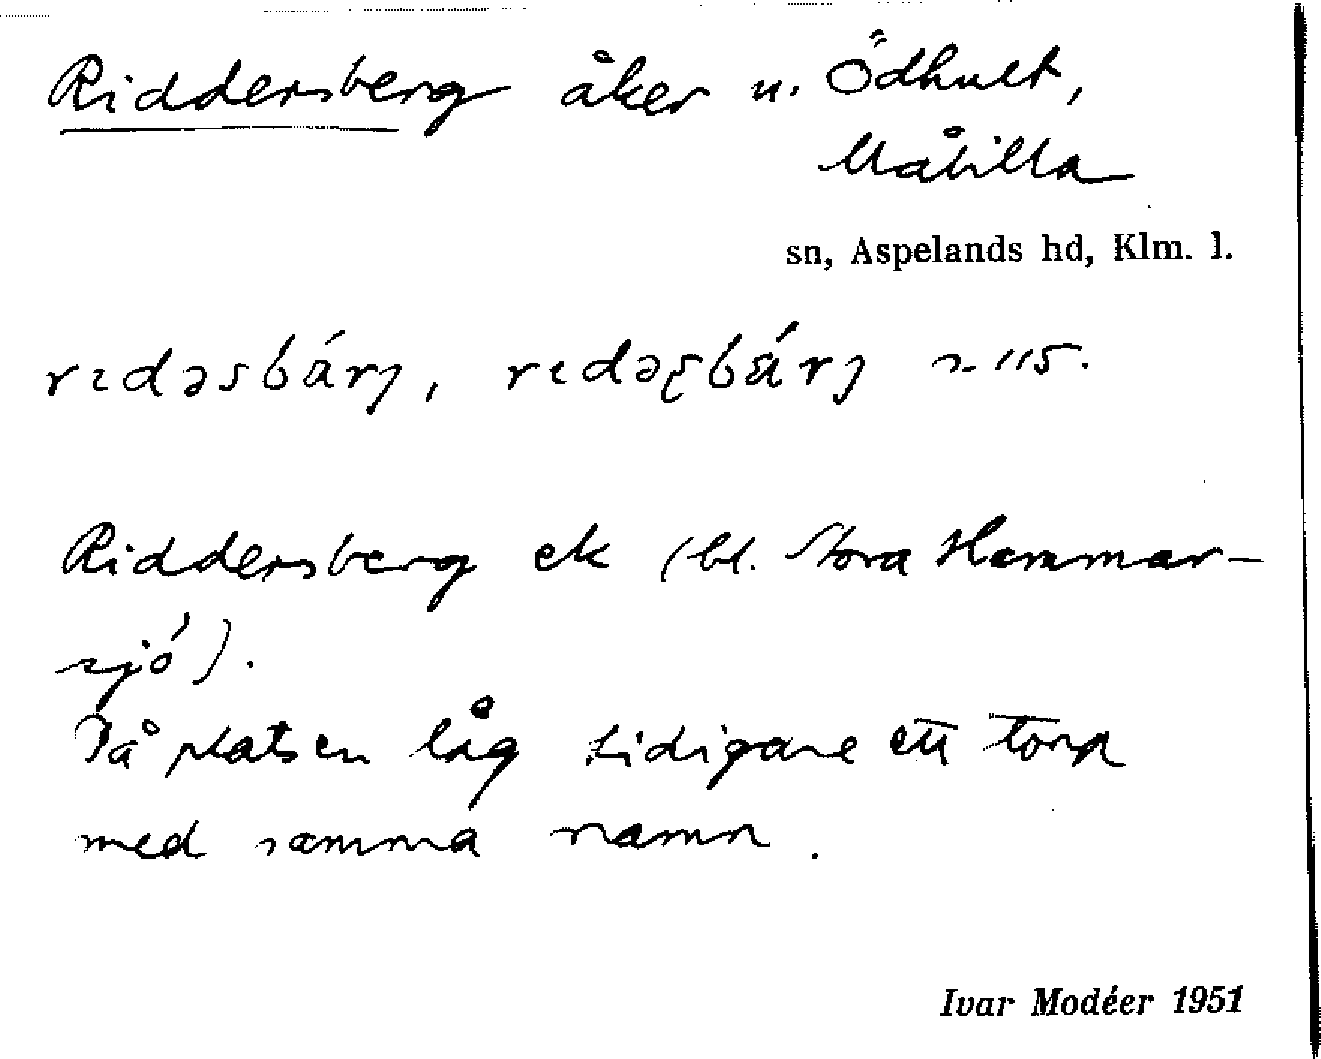 Riddersberg åker u. Ödhult,
Målilla
sn, Aspelands hd, Klm. l.
rɪdəsbárj, rɪdəʂbárj n 115.
Riddersberg ek (bl. Stora Hammar-
sjö).
På platsen låg tidigare ett torp
med samma namn.
Ivar Modéer 1951